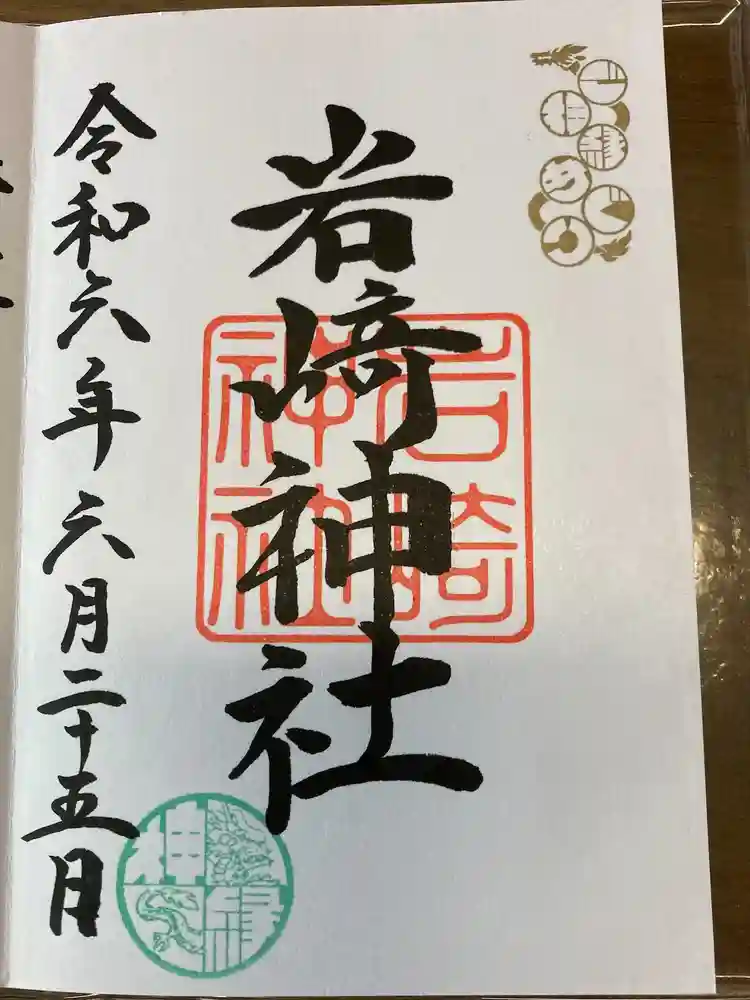 岩﨑神社
令和六年六月二十五日
岩崎
神社